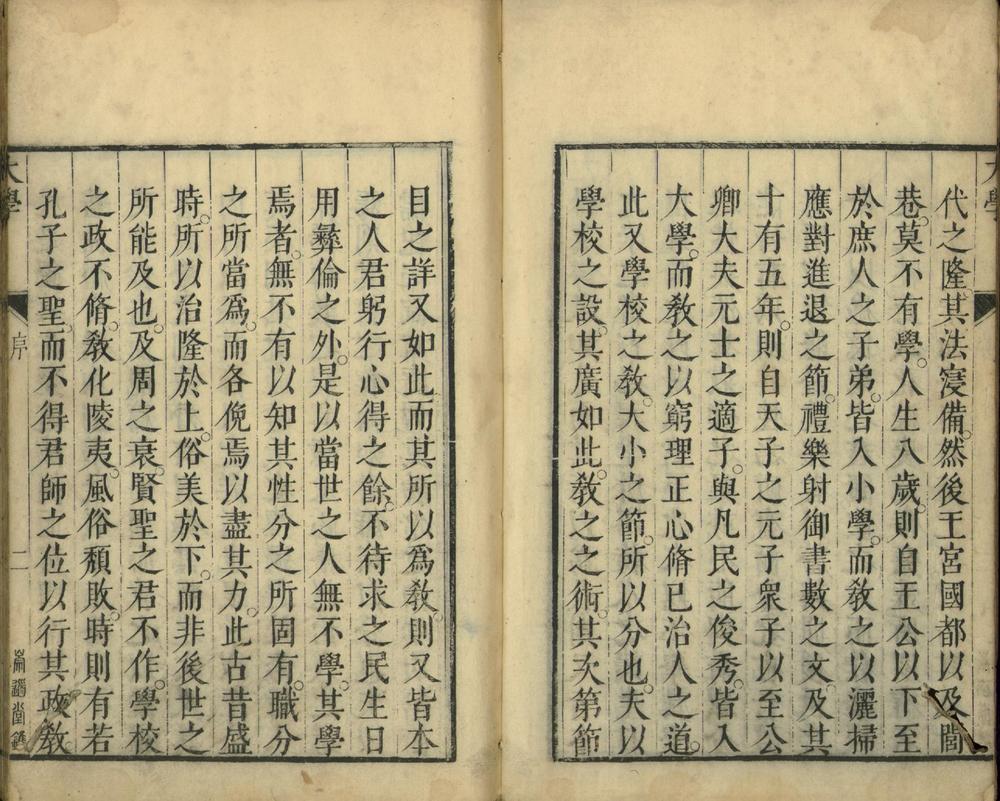 代之隆其法寖備。然後王宮國都以及閭
巷。莫不有學。人生八歲。則自王公以下至
於庶人之子弟。皆入小學。而敎之以灑掃
應對進退之節。禮樂射御書數之文。及其
十有五年。則自天子之元子衆子以至公
卿大夫元士之適子。與凡民之俊秀。皆入
大學。而敎之以窮理正心脩己治人之道。
此又學校之敎。大小之節。所以分也。夫以
學校之設。其廣如此。敎之之術。其次第節
目之詳又如此。而其所以爲敎。則又皆本
之人君躬行心得之餘。不待求之民生日
用彝倫之外。是以當世之人無不學。其學
焉者。無不有以知其性分之所固有。職分
之所當爲。而各俛焉以盡其力。此古昔盛
時。所以治隆於上。俗美於下。而非後世之
所能及也。及周之衰。賢聖之君不作。學校
之政不脩。敎化陵夷。風俗頹敗。時則有若
孔子之聖。而不得君師之位以行其政敎
大學
序
二